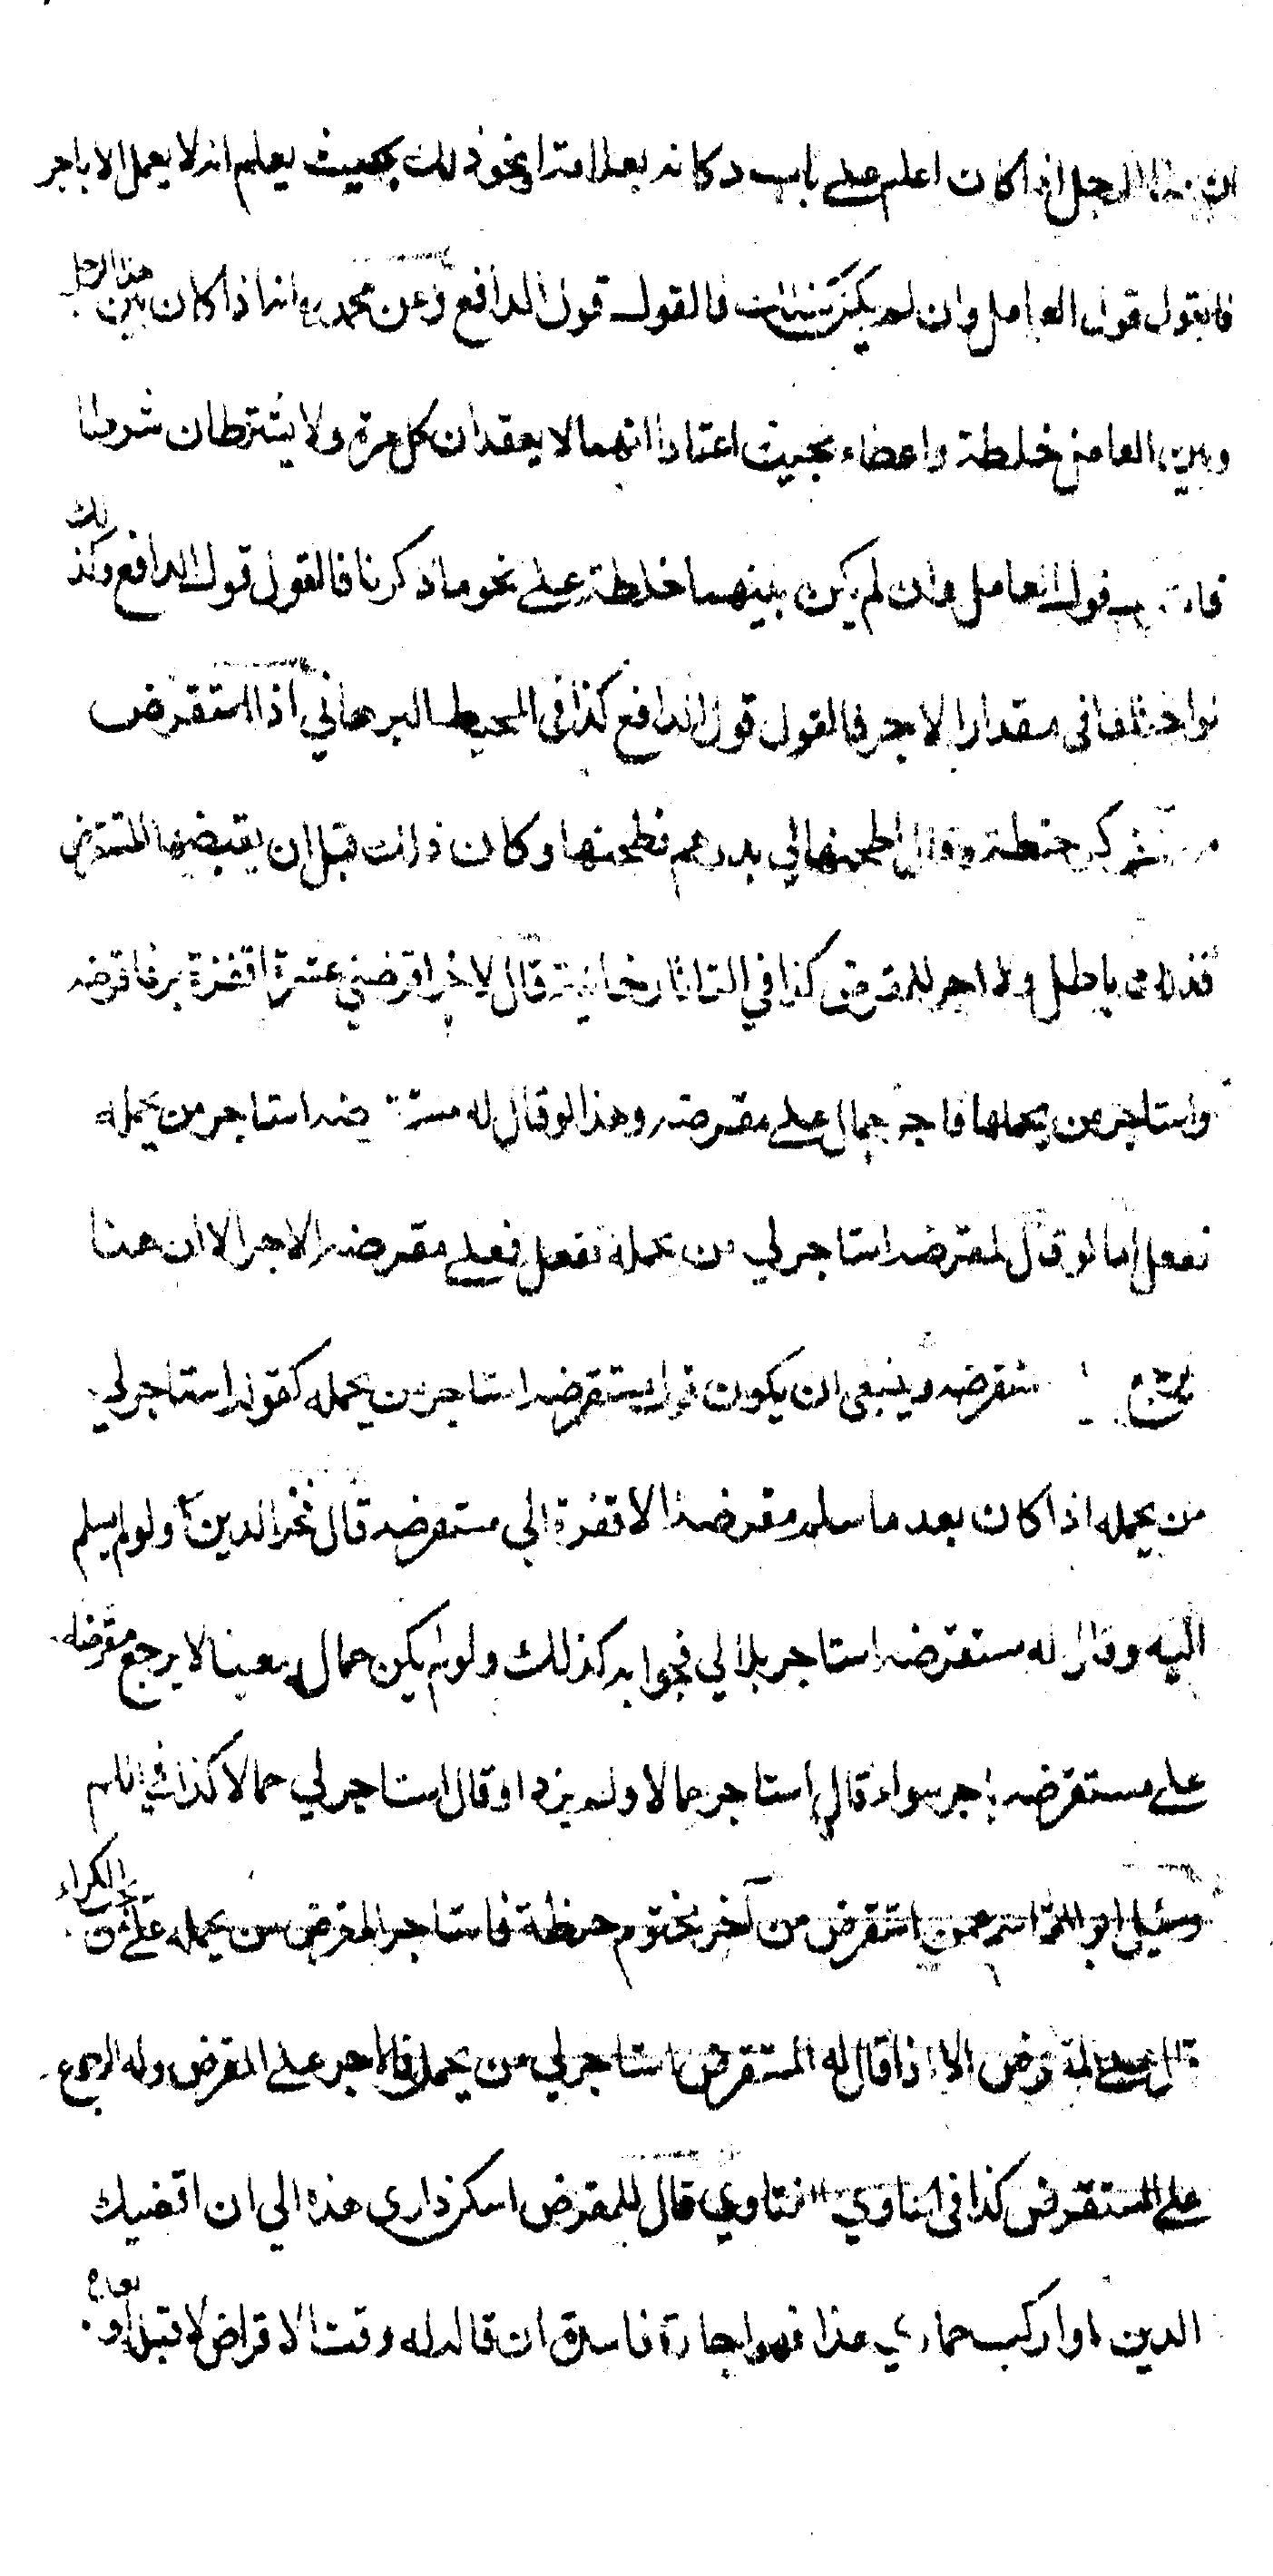 ان هذا الرجل اذا كان اعلم على باب دكانه بعلامة او نحو ذلك بحيث يعلم انه لا يعمل الا باجر
فالقول قول العامل وان لم يكن كذلك فالقول قول الدافع وعن محمد رح انه اذا كان بين هذا الرجل
وبين العامل خلطة واعطاء بحيث اعتادا انهما لا يعقدان كل مرة ولا يشترطان شرطا
فالقول قول العامل وان لم يكن بينهما خلطة على نحو ما ذكرنا فالقول قول الدافع وكذلك
لو اختلفا في مقدار الاجر فالقول قول الدافع كذا في المحيط البرهاني اذا استقرض
من كر حنطة وقال اطحنها لي بدرهم فطحنها وكان ذلك قبل ان يقبضها المستقرض
فذلك باطل ولا اجر للمقرض كذا في التاتارخانية قال لاخر اقرضني عشرة اقفزة بر فاقرضه
واستاجر من يحملها فاجر حمال على مقرضه وهذا لو قال له مستقرضه استاجر من يحمله
نفعل اما لو قال لمقرضه استاجر لي من يحمله نفعل فعلى مقرضه الاجر الا ان هنا
يرجع مستقرضه وينبغي ان يكون قول مستقرضه استاجر من يحمله كقوله استاجر لي
من يحمله اذا كان بعد ما سلم مقرضه الاقفزة الى مستقرضه قال فخر الدين ولو لم يسلم
اليه وقال له مستقرضه استاجر بلا لي فجوابه كذلك ولو لم يكن حمال معينا لا يرجع مقرضه
على مستقرضه باجر سواء قال استاجر حمالا ولم يزد او قال استاجر لي حمالا كذا في
وسئل ابو القاسم عمن استقرض من آخر مختوم حنطة فاستاجر المقرض من يحمله على من الكراء
قال على المقرض الا اذا قال له المستقرض استاجر لي من يحمل فالاجر على المقرض وله الرجوع
على المستقرض كذا في الحاوي الفتاوي قال للمقرض اسكن داري هذه الى ان اقضيك
الدين او اركب حماري هذا فهو اجارة فاسدة ان قال له وقت الاقراض لا قبله او بعده